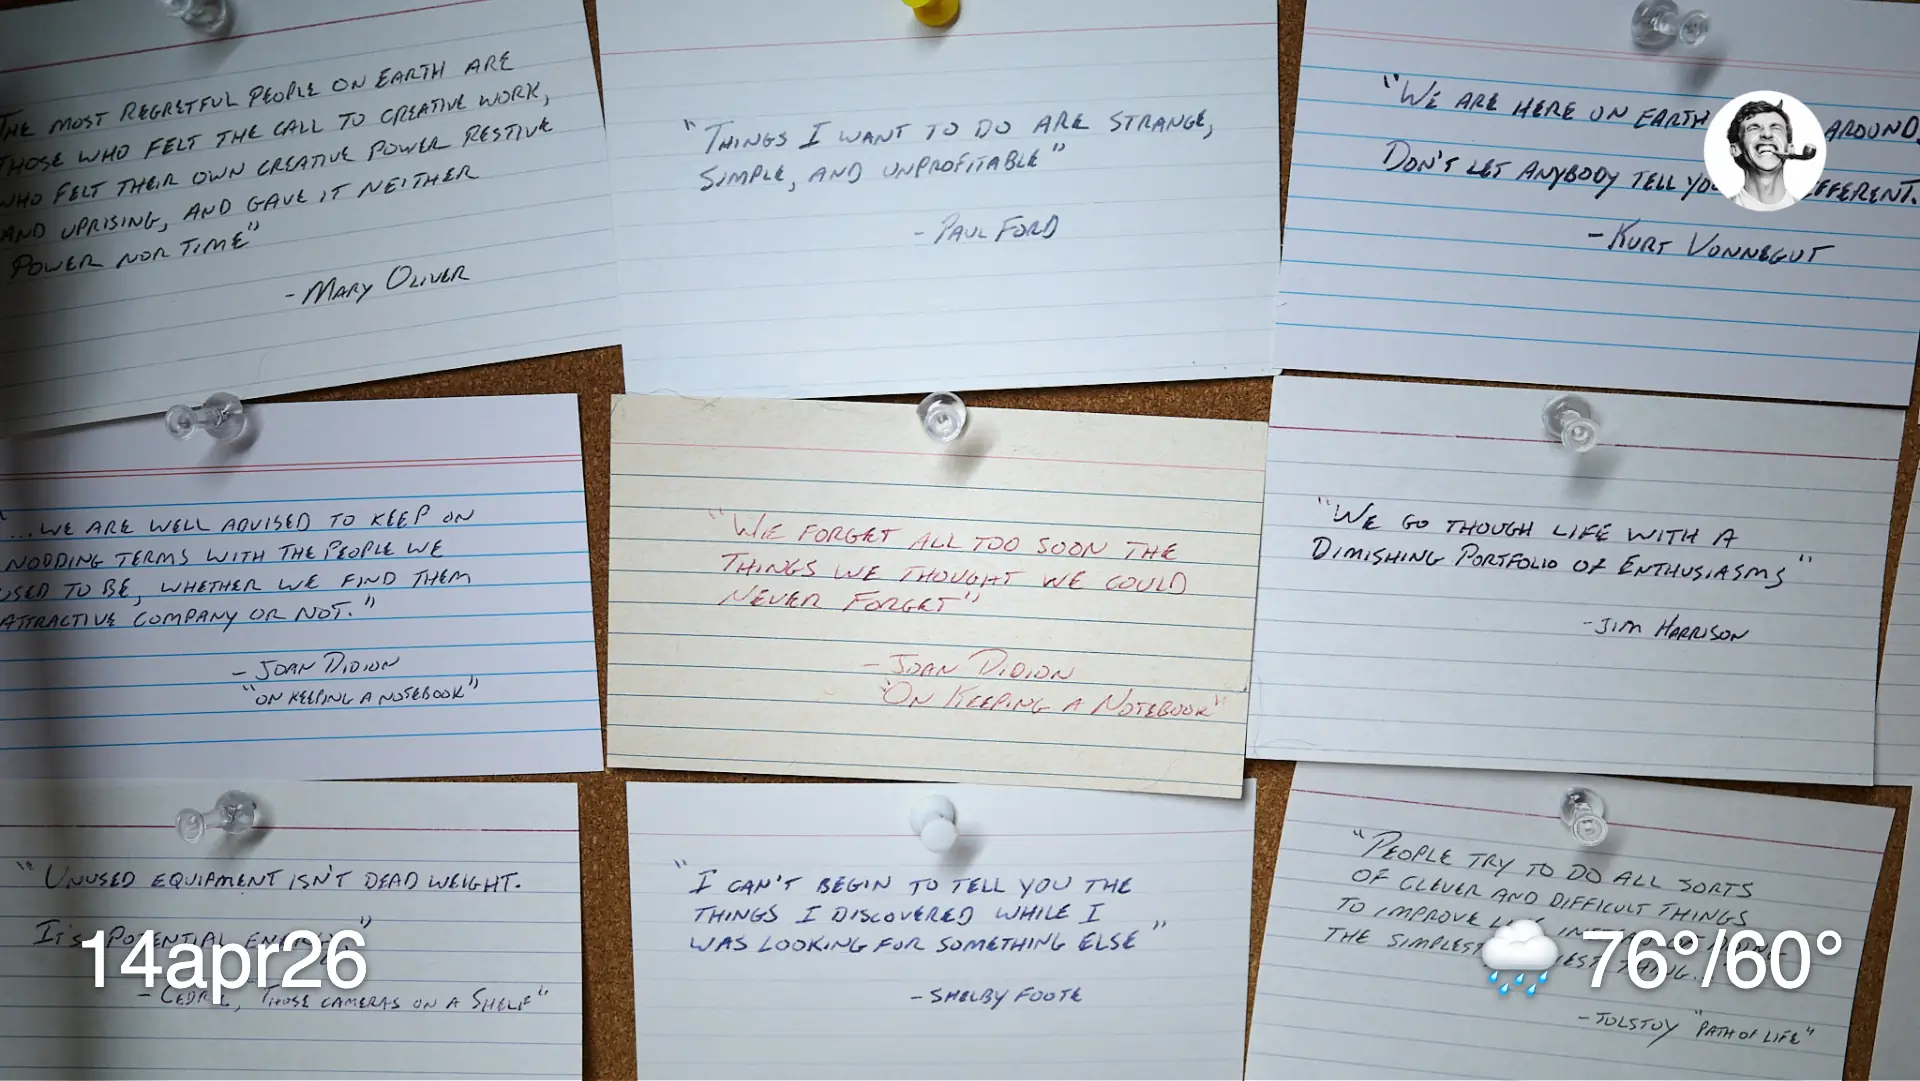 THE MOST REGRETFUL PEOPLE ON EARTH ARE
THOSE WHO FELT THE CALL TO CREATIVE WORK,
WHO FELT THEIR OWN CREATIVE POWER RESTIVE
AND UPRISING, AND GAVE IT NEITHER
POWER NOR TIME"
- MARY OLIVER
"THINGS I WANT TO DO ARE STRANGE,
SIMPLE, AND UNPROFITABLE"
- PAUL FORD
"WE ARE HERE ON EARTH AROUND,
DON'T LET ANYBODY TELL YOU
- KURT VONNEGUT
"...WE ARE WELL ADVISED TO KEEP ON
NODDING TERMS WITH THE PEOPLE WE
USED TO BE, WHETHER WE FIND THEM
ATTRACTIVE COMPANY OR NOT."
- JOAN DIDION
"ON KEEPING A NOTEBOOK"
"WE FORGET ALL TOO SOON THE
THINGS WE THOUGHT WE COULD
NEVER FORGET"
- JOAN DIDION
"ON KEEPING A NOTEBOOK"
"WE GO THOUGH LIFE WITH A
DIMISHING PORTFOLIO OF ENTHUSIASMS"
- JIM HARRISON
"UNUSED EQUIPMENT ISN'T DEAD WEIGHT.
IT'S POTENTIAL ENERGY"
- CEDRIC, THOSE CAMERAS ON A SHELF"
"I CAN'T BEGIN TO TELL YOU THE
THINGS I DISCOVERED WHILE I
WAS LOOKING FOR SOMETHING ELSE"
- SHELBY FOOTE
"PEOPLE TRY TO DO ALL SORTS
OF CLEVER AND DIFFICULT THINGS
TO IMPROVE LIFE INSTEAD OF DOING
THE SIMPLEST THING.
- TOLSTOY "PATH OF LIFE"
14apr26
76°/60°